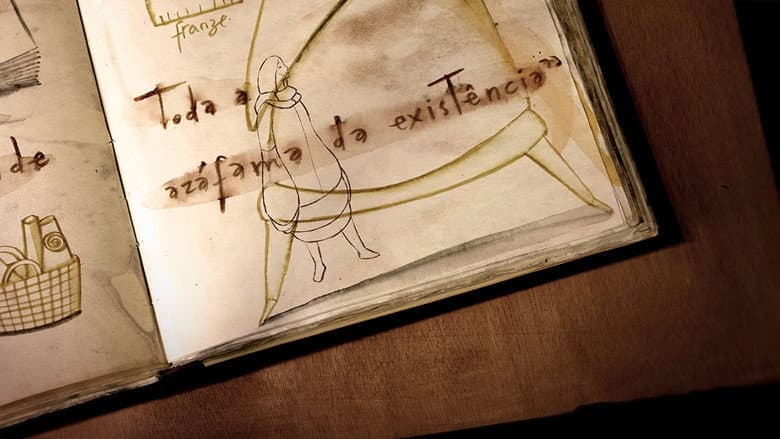 franze.
de
Toda a
azáfama da existência"